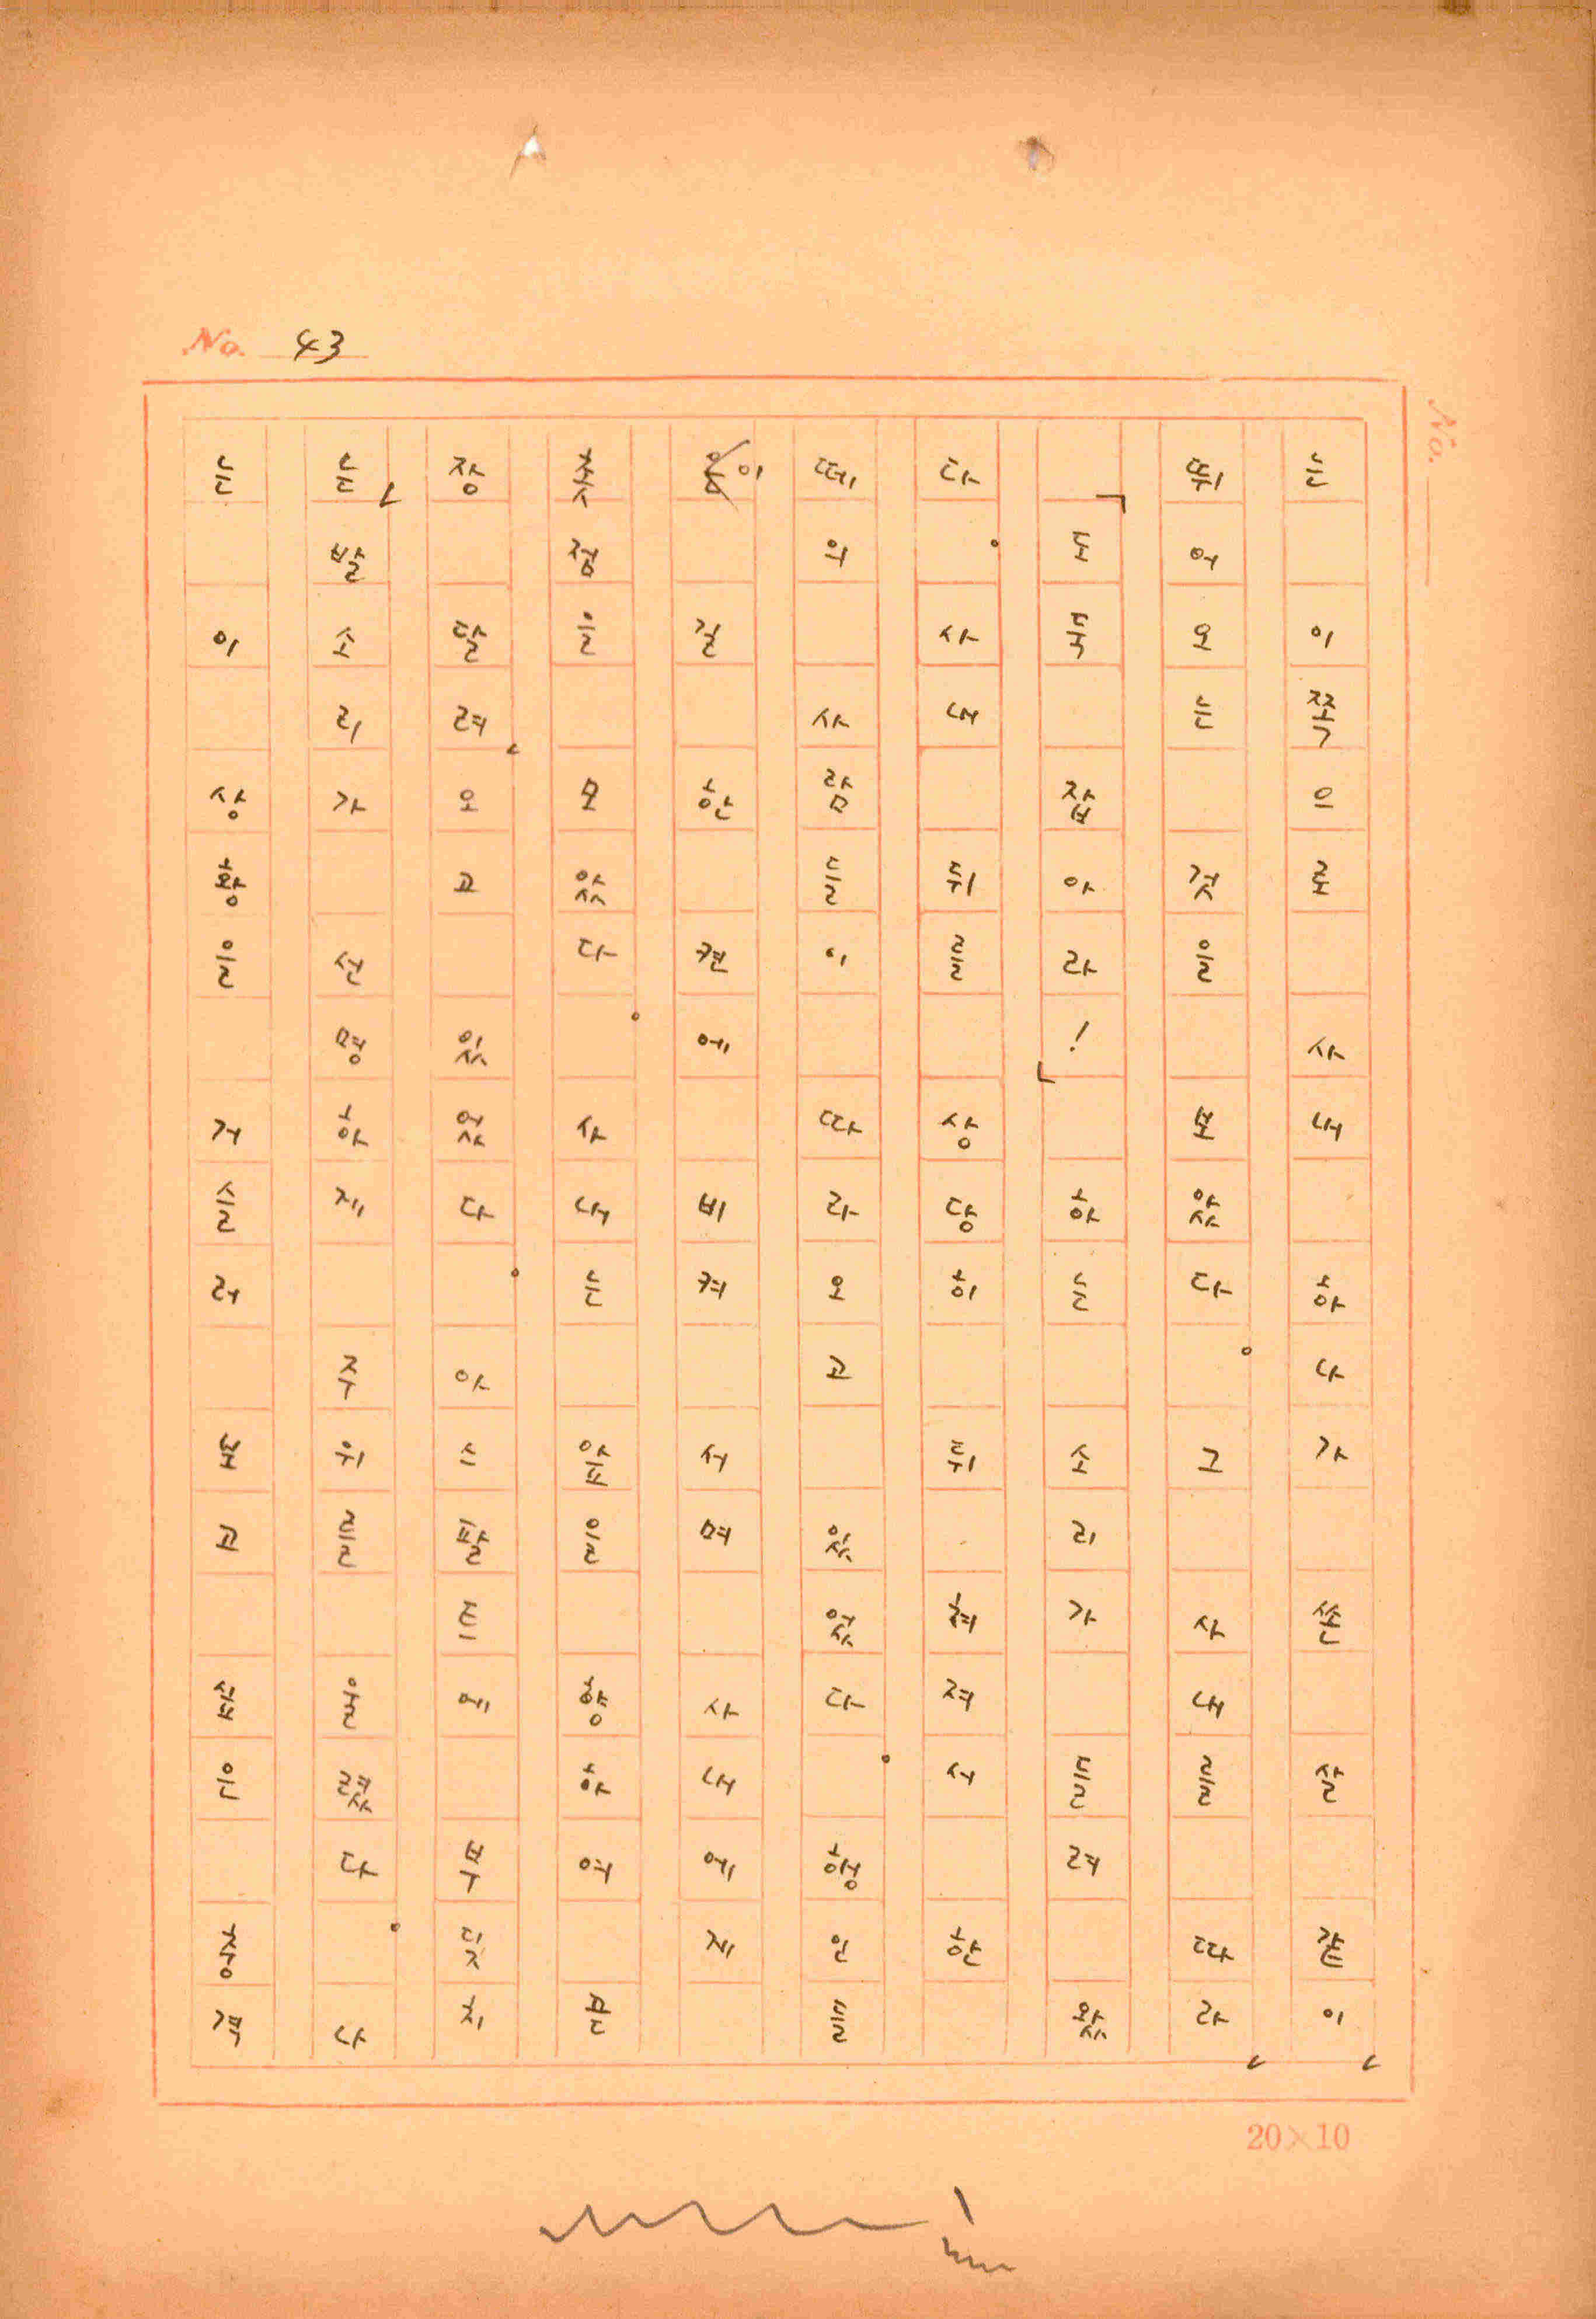 No. 43
No.
는 이쪽으로 사내 하나가 쏜 살같이,
뛰어오는 것을 보았다. 그 사내를 따라,
「도둑 잡아라!」 하는 소리가 들려 왔
다. 사내 뒤를 상당히 뒤 쳐져서 한
떼의 사람들이 따라오고 있었다. 행인들
이 길 한 켠에 비켜 서며 사내에게
촛점을 모았다. 사내는 앞을 향하여 문
장 달려, 오고 있었다. 아스팔트에 부딪치
는, 발소리가 선명하게 주위를 울렸다. 나
는 이 상황을 거슬러 보고 싶은 충격
20×10